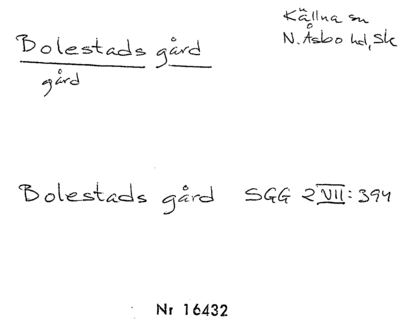 Källna sn
N. Åsbo hd, Sk
Bolestads gård
gård
Bolestads gård SGG 2 VII: 394
Nr 16432